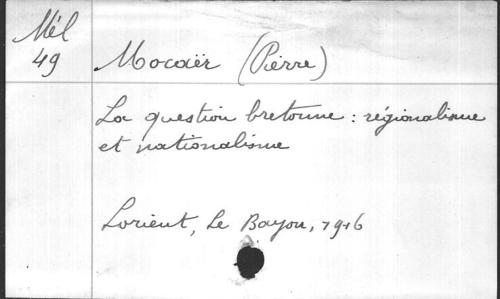 Mél
49
Mocaër (Pierre)
La question bretonne : régionalisme
et nationalisme
Lorient, Le Bayon, 1916